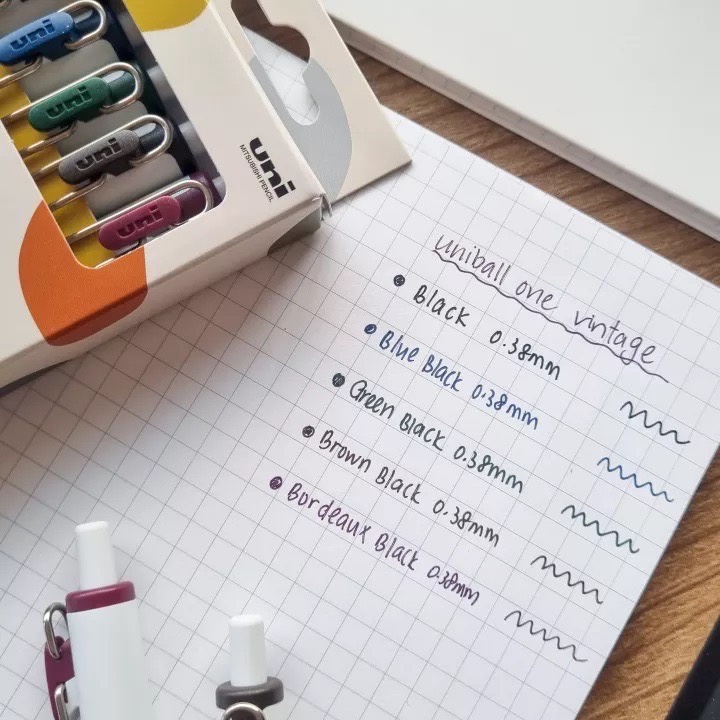 uni
uni
uni
uni
uni
MITSUBISHI PENCIL
uniball one vintage
Black 0.38mm
Blue Black 0.38mm
Green Black 0.38mm
Brown Black 0.38mm
Bordeaux Black 0.38mm